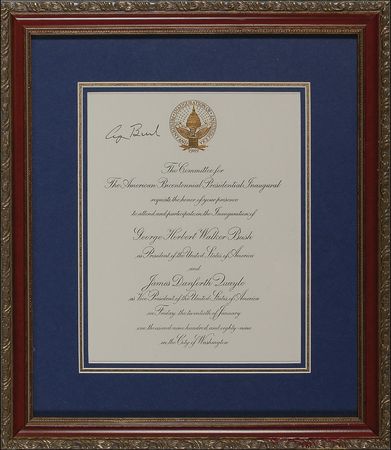 The Committee for
The American Bicentennial Presidential Inaugural
requests the honor of your presence
to attend and participate in the Inauguration of
George Herbert Walker Bush
as President of the United States of America
and
James Danforth Quayle
as Vice President of the United States of America
on Friday the twentieth of January
one thousand nine hundred and eighty-nine
in the City of Washington